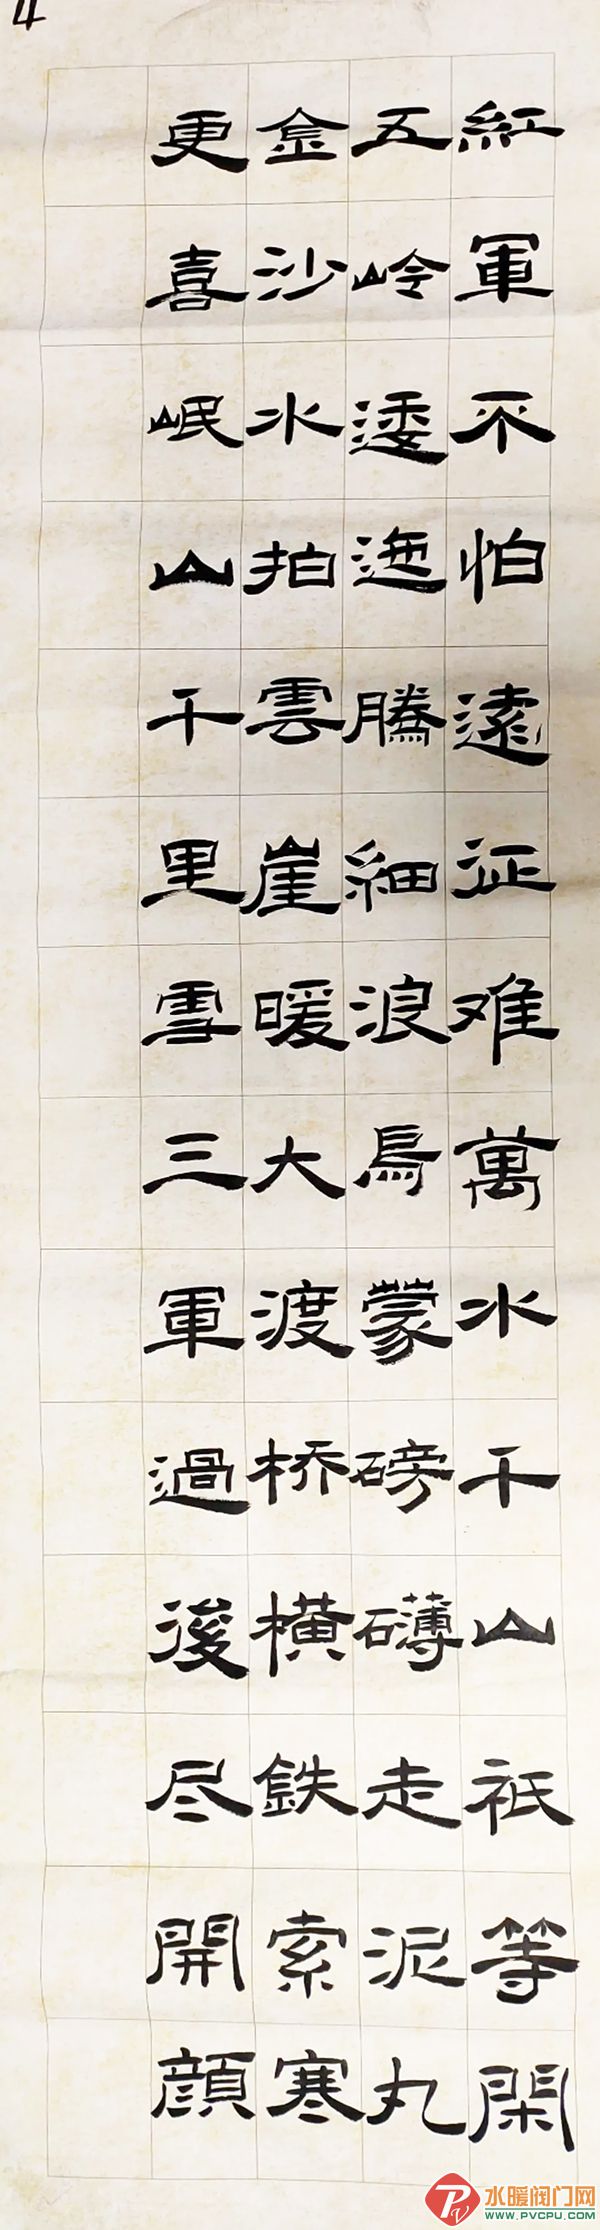 4
紅軍不怕遠征难萬水千山祇等閑
五岭逶迤騰細浪烏蒙磅礴走泥丸
金沙水拍雲崖暖大渡桥横鉄索寒
更喜岷山千里雪三軍過後尽開顔
水暖阀门网
WWW.PVCPU.COM